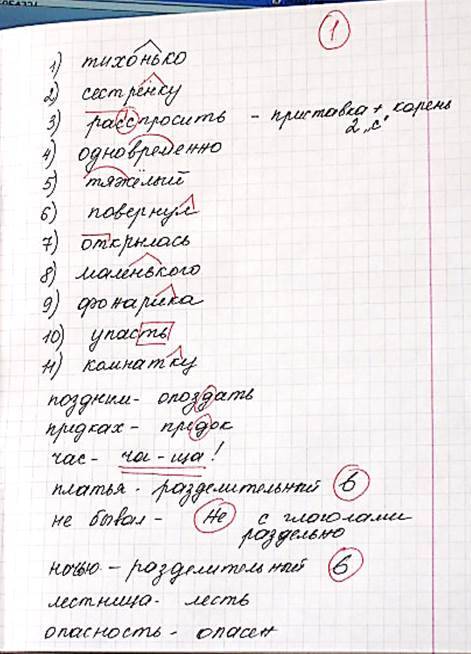 1
1) тихонько
2) сестрёнку
3) расспросить - приставка + корень
2 „с"
4) одновременно
5) тяжёлый
6) повернул
7) открылась
8) маленького
9) фонарика
10) упасть
11) комнатку
поздним - опоздать
предках - предок
час - ча - ща!
платья - разделительный ь
не бывал - не с глаголами
раздельно
ночью - разделительный ь
лестница - лесть
опасность - опасен